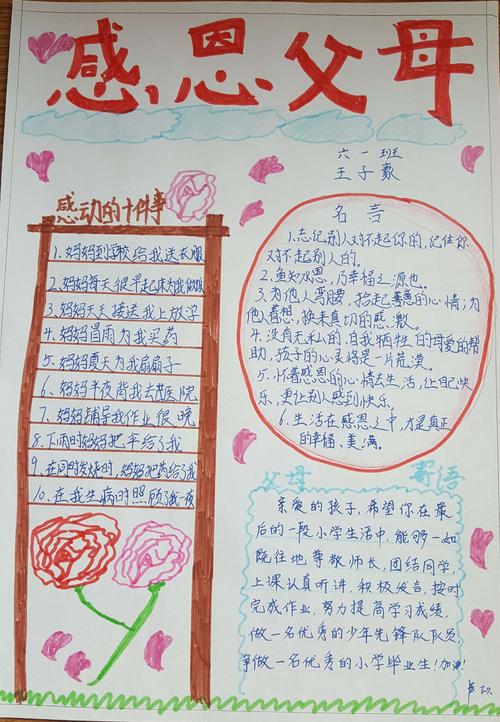 感恩父母
六一班
王子豪
感动的十件事
1、妈妈到学校给我送衣服
2、妈妈每天很早起床为我做饭
3、妈妈天天接送我上放学
4、妈妈冒雨为我买药
5、妈妈夏天为我扇扇子
6、妈妈半夜背我去医院
7、妈妈辅导我作业很晚
8、下雨时妈妈把伞给了我
9、在同时发烧时,妈妈把药给了我
10、在我生病的照顾了我一夜
名言
1.忘记别人对不起你的,记住你
对不起别人的。
2.鱼知水恩,乃幸福之源也。
3.为他人弯腰,拾起善意的心情;为
他人着想,换来真切的感激。
4.没有无私的,自我牺牲的母爱的帮
助,孩子的心灵将是一片荒漠。
5.怀着感恩的心情去生活,让自己快
乐,更让别人感到快乐。
6.生活在感恩之中,才是真正
的幸福、美满。
父母寄语
亲爱的孩子,希望你在最
后的一段小学生活中,能够一如
既往地尊敬师长,团结同学,
上课认真听讲,积极发言,按时
完成作业,努力提高学习成绩,
做一名优秀的少年先锋队队员,
争做一名优秀的小学毕业生!加油!